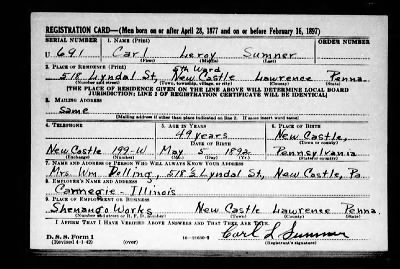 REGISTRATION CARD—(Men born on or after April 28, 1877 and on or before February 16, 1897)
SERIAL NUMBER 1. NAME (Print) ORDER NUMBER
U 691 Carl Leroy Sumner
(First) (Middle) (Last)
2. PLACE OF RESIDENCE (Print) 5th Ward
518 Lyndal St, New Castle Lawrence Penna.
(Number and street) (Town, township, village, or city) (County) (State)
[THE PLACE OF RESIDENCE GIVEN ON THE LINE ABOVE WILL DETERMINE LOCAL BOARD
JURISDICTION; LINE 2 OF REGISTRATION CERTIFICATE WILL BE IDENTICAL]
3. MAILING ADDRESS
Same
[Mailing address if other than place indicated on line 2. If same insert word same]
4. TELEPHONE 5. AGE IN YEARS 6. PLACE OF BIRTH
49 years New Castle,
DATE OF BIRTH (Town or county)
New Castle 199-W May 5 1892 Pennsylvania
(Exchange) (Number) (Mo.) (Day) (Yr.) (State or country)
7. NAME AND ADDRESS OF PERSON WHO WILL ALWAYS KNOW YOUR ADDRESS
Mrs. Wm. Dolling, 518½ Lyndal St, New Castle, Pa.
8. EMPLOYER'S NAME AND ADDRESS
Carnegie-Illinois
9. PLACE OF EMPLOYMENT OR BUSINESS
Shenango Works New Castle Lawrence Penna.
(Number and street or R. F. D. number) (Town) (County) (State)
I AFFIRM THAT I HAVE VERIFIED ABOVE ANSWERS AND THAT THEY ARE TRUE.
D. S. S. Form 1 Carl L Sumner
(Revised 4-1-42) (over) (Registrant's signature)